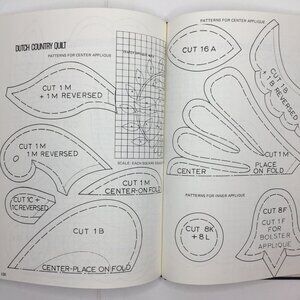 DUTCH COUNTRY QUILT
PATTERNS FOR CENTER APPLIQUE
CUT 1 M
+ 1 M REVERSED
CUT 1 M
1 M REVERSED
CUT 1 M
CENTER-ON FOLD
CUT 1C +
1C REVERSED
CUT 1 B
CENTER-PLACE ON FOLD
SCALE: EACH SQUARE
PATTERNS FOR CENTER APPLIQUE
CUT 16 A
CUT 1 B
REVERSED
CENTER
CUT 1 M
PLACE
ON FOLD
PATTERNS FOR INNER APPLIQUE
CUT 8K
+ 8 L
CUT 8F
CUT 1F
FOR
BOLSTER
APPLIQUE